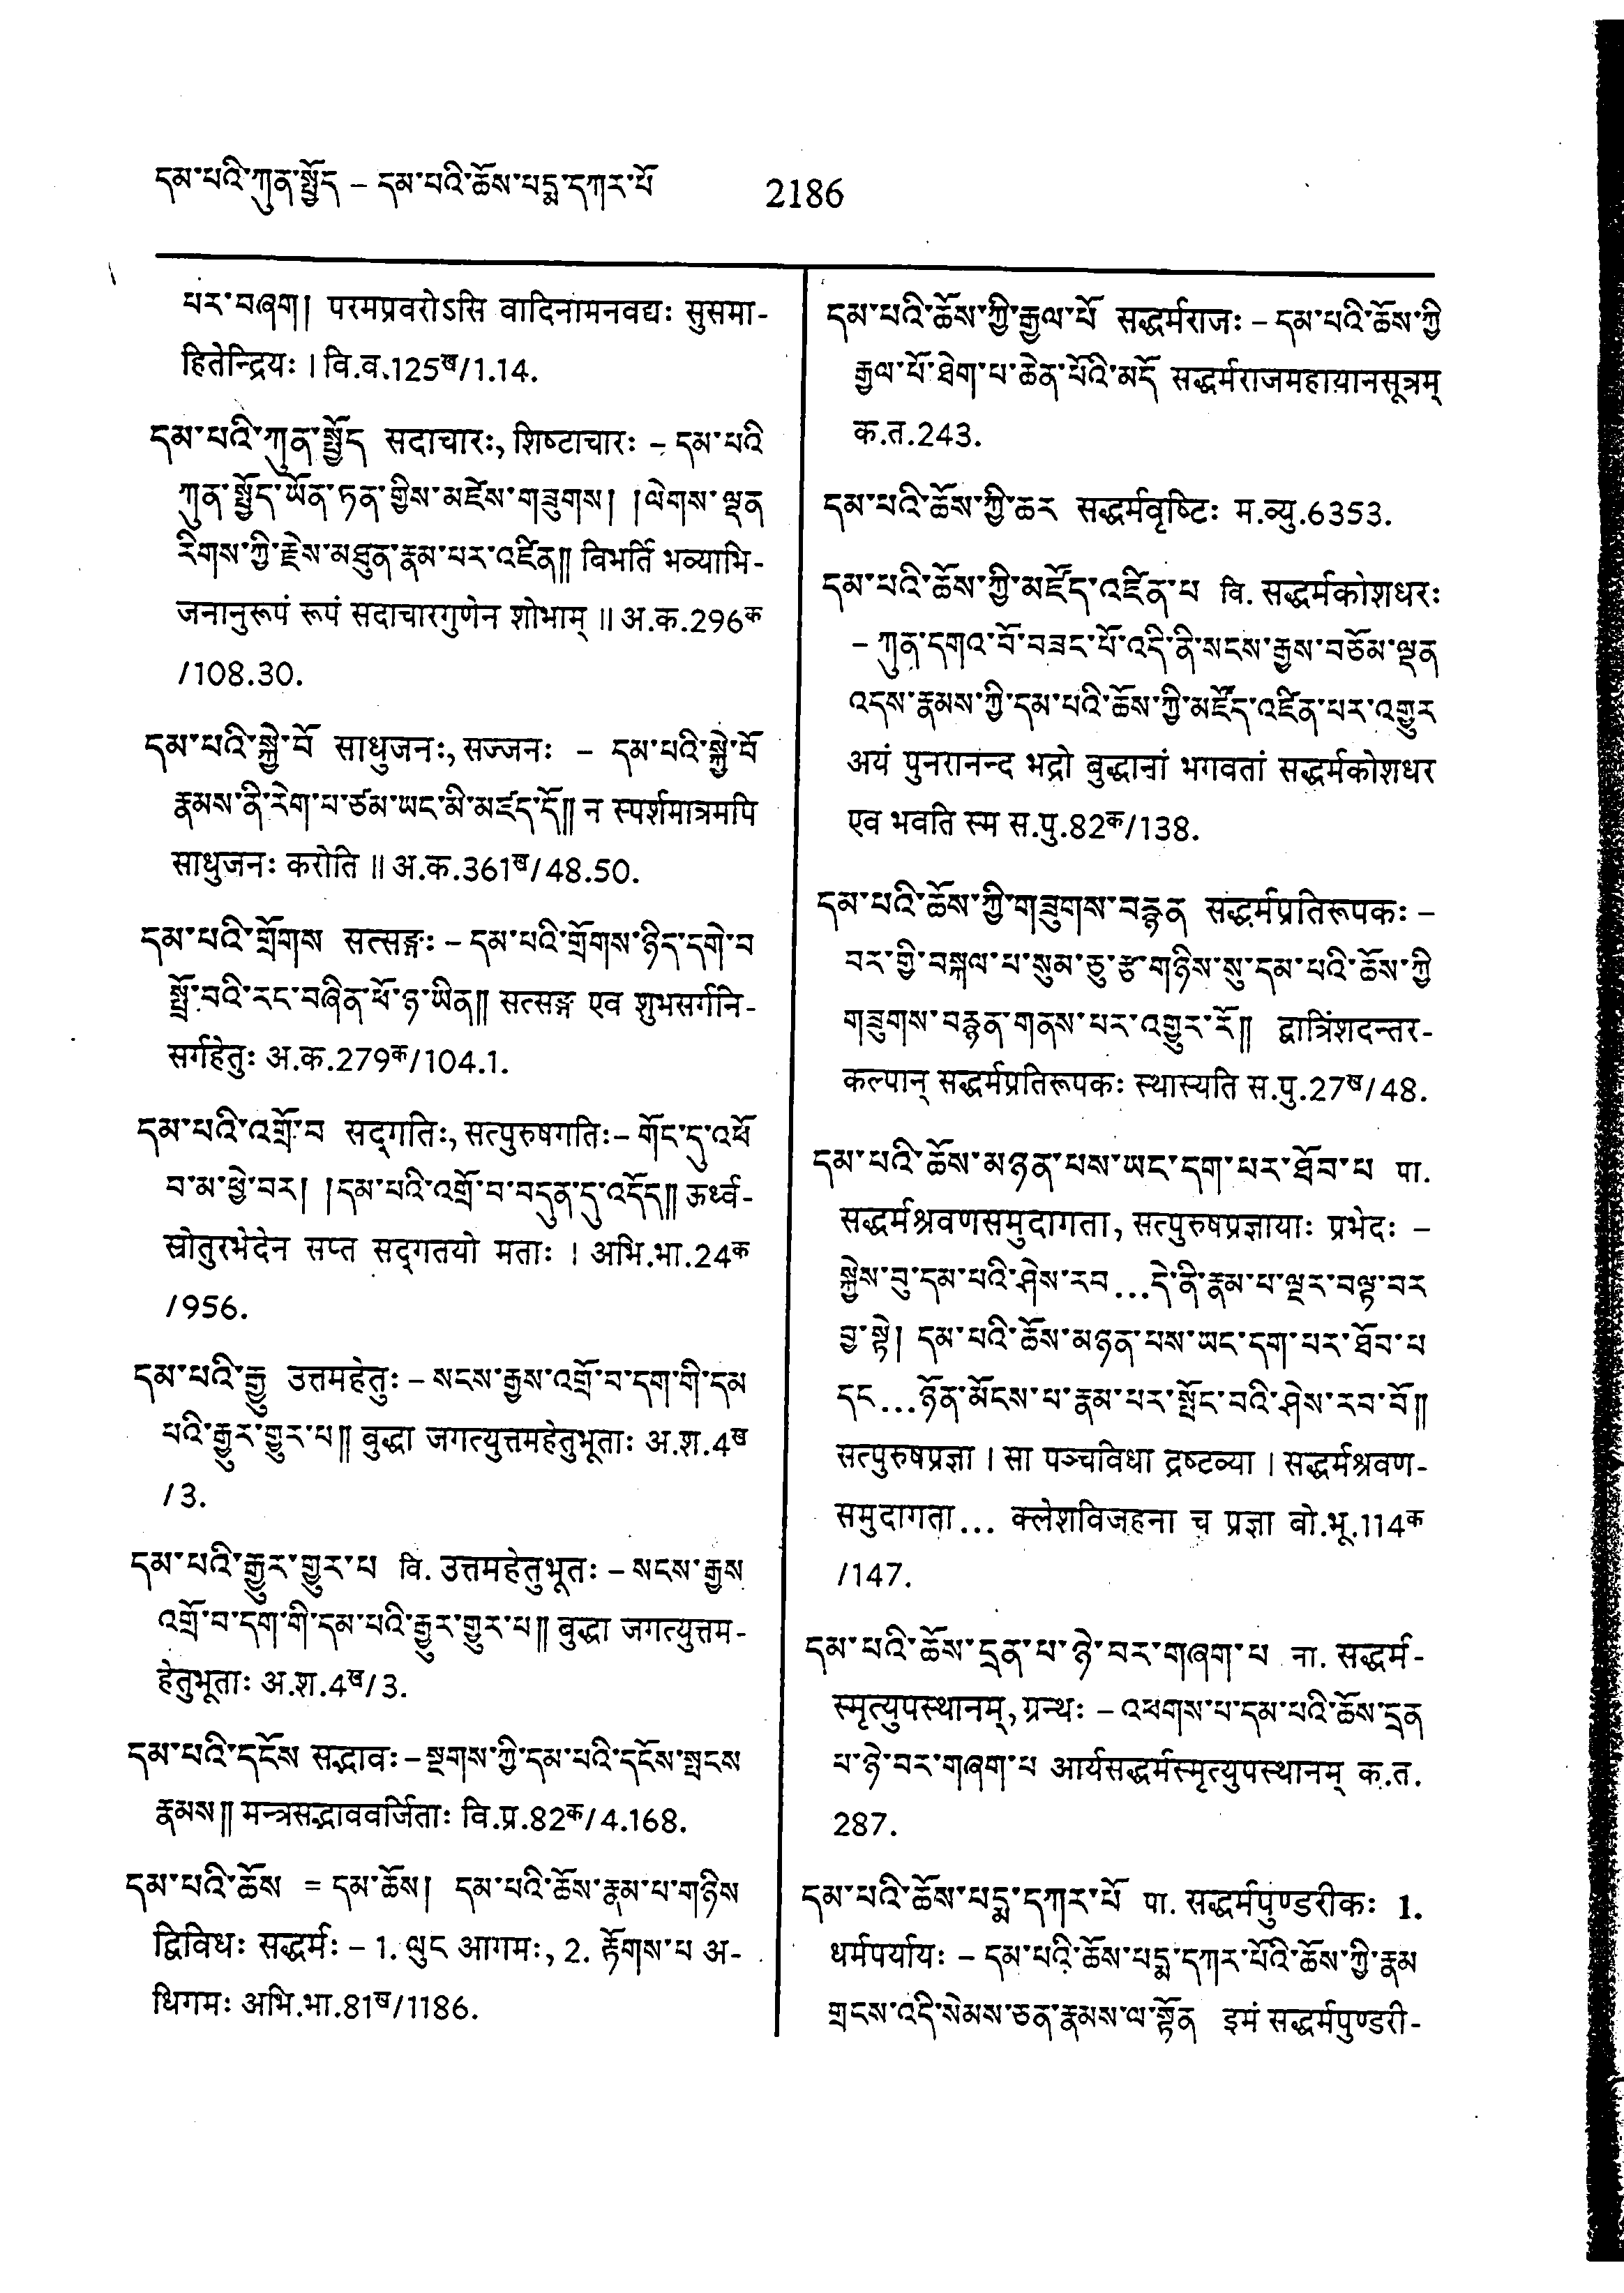 དམ་པའི་ཀུན་སྤྱོད – དམ་པའི་ཆོས་པདྨ་དཀར་པོ 2186
པར་བཞག། परमप्रवरोऽसि वादिनामनवद्यः सुसमा-
हितेन्द्रियः । वि.व.125ख/1.14.
དམ་པའི་ཀུན་སྤྱོད सदाचारः, शिष्टाचारः – དམ་པའི
ཀུན་སྤྱོད་ཡོན་ཏན་གྱིས་མཛེས་གཟུགས། །ལེགས་ལྡན
རིགས་ཀྱི་རྗེས་མཐུན་རྣམ་པར་འཛིན།། विभर्ति भव्याभि-
जनानुरूपं रूपं सदाचारगुणेन शोभाम् ॥ अ.क.296क
/108.30.
དམ་པའི་སྐྱེ་བོ साधुजनः, सज्जनः – དམ་པའི་སྐྱེ་བོ
རྣམས་ནི་རེག་པ་ཙམ་ཡང་མི་མཛད་དོ།། न स्पर्शमात्रमपि
साधुजनः करोति ॥ अ.क.361ख/48.50.
དམ་པའི་གྲོགས सत्सङ्गः – དམ་པའི་གྲོགས་ཉིད་དགེ་བ
སྤྲོ་བའི་རང་བཞིན་ཕོ་ཉ་ཡིན།། सत्सङ्ग एव शुभसर्गनि-
सर्गहेतुः अ.क.279क/104.1.
དམ་པའི་འགྲོ་བ सद्गतिः, सत्पुरुषगतिः – གོང་དུ་འཕོ
བ་མ་ཕྱེ་བར། །དམ་པའི་འགྲོ་བ་བདུན་དུ་འདོད།། ऊर्ध्व-
स्रोतुरभेदेन सप्त सद्गतयो मताः । अभि.भा.24क
/956.
དམ་པའི་རྒྱུ उत्तमहेतुः – སངས་རྒྱས་འགྲོ་བ་དག་གི་དམ
པའི་རྒྱུར་གྱུར་པ།། बुद्धा जगत्युत्तमहेतुभूताः अ.श.4ख
/3.
དམ་པའི་རྒྱུར་གྱུར་པ वि. उत्तमहेतुभूतः – སངས་རྒྱས
འགྲོ་བ་དག་གི་དམ་པའི་རྒྱུར་གྱུར་པ།། बुद्धा जगत्युत्तम-
हेतुभूताः अ.श.4ख/3.
དམ་པའི་དངོས सद्भावः – སྔགས་ཀྱི་དམ་པའི་དངོས་སྤངས
རྣམས།། मन्त्रसद्भाववर्जिताः वि.प्र.82क/4.168.
དམ་པའི་ཆོས = དམ་ཆོས། དམ་པའི་ཆོས་རྣམ་པ་གཉིས
द्विविधः सद्धर्मः – 1. ལུང आगमः, 2. རྟོགས་པ अ-
धिगमः अभि.भा.81ख/1186.
དམ་པའི་ཆོས་ཀྱི་རྒྱལ་པོ सद्धर्मराजः – དམ་པའི་ཆོས་ཀྱི
རྒྱལ་པོ་ཐེག་པ་ཆེན་པོའི་མདོ सद्धर्मराजमहायानसूत्रम्
क.त.243.
དམ་པའི་ཆོས་ཀྱི་ཆར सद्धर्मवृष्टिः म.व्यु.6353.
དམ་པའི་ཆོས་ཀྱི་མཛོད་འཛིན་པ वि. सद्धर्मकोशधरः
– ཀུན་དགའ་བོ་བཟང་པོ་འདི་ནི་སངས་རྒྱས་བཅོམ་ལྡན
འདས་རྣམས་ཀྱི་དམ་པའི་ཆོས་ཀྱི་མཛོད་འཛིན་པར་འགྱུར
अयं पुनरानन्द भद्रो बुद्धानां भगवतां सद्धर्मकोशधर
एव भवति स्म स.पु.82क/138.
དམ་པའི་ཆོས་ཀྱི་གཟུགས་བརྙན सद्धर्मप्रतिरूपकः –
བར་གྱི་བསྐལ་པ་སུམ་ཅུ་རྩ་གཉིས་སུ་དམ་པའི་ཆོས་ཀྱི
གཟུགས་བརྙན་གནས་པར་འགྱུར་རོ།། द्वात्रिंशदन्तर-
कल्पान् सद्धर्मप्रतिरूपकः स्थास्यति स.पु.27ख/48.
དམ་པའི་ཆོས་མཉན་པས་ཡང་དག་པར་ཐོབ་པ पा.
सद्धर्मश्रवणसमुदागता, सत्पुरुषप्रज्ञायाः प्रभेदः –
སྐྱེས་བུ་དམ་པའི་ཤེས་རབ...དེ་ནི་རྣམ་པ་ལྔར་བལྟ་བར
བྱ་སྟེ། དམ་པའི་ཆོས་མཉན་པས་ཡང་དག་པར་ཐོབ་པ
དང...ཉོན་མོངས་པ་རྣམ་པར་སྤོང་བའི་ཤེས་རབ་བོ།།
सत्पुरुषप्रज्ञा । सा पञ्चविधा द्रष्टव्या । सद्धर्मश्रवण-
समुदागता... क्लेशविजहना च प्रज्ञा बो.भू.114क
/147.
དམ་པའི་ཆོས་དྲན་པ་ཉེ་བར་གཞག་པ ना. सद्धर्म-
स्मृत्युपस्थानम्, ग्रन्थः – འཕགས་པ་དམ་པའི་ཆོས་དྲན
པ་ཉེ་བར་གཞག་པ आर्यसद्धर्मस्मृत्युपस्थानम् क.त.
287.
དམ་པའི་ཆོས་པདྨ་དཀར་པོ पा. सद्धर्मपुण्डरीकः 1.
धर्मपर्यायः – དམ་པའི་ཆོས་པདྨ་དཀར་པོའི་ཆོས་ཀྱི་རྣམ
གྲངས་འདི་སེམས་ཅན་རྣམས་ལ་སྟོན इमं सद्धर्मपुण्डरी-